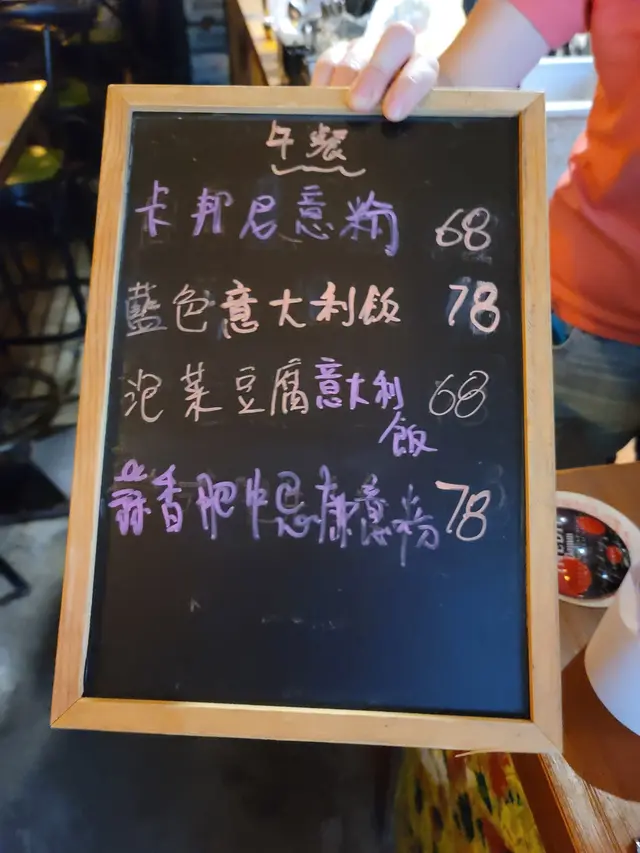 午餐
卡邦尼意粉 68
藍色意大利飯 78
泡菜豆腐意大利 68
飯
蒜香肥牛忌廉意粉 78